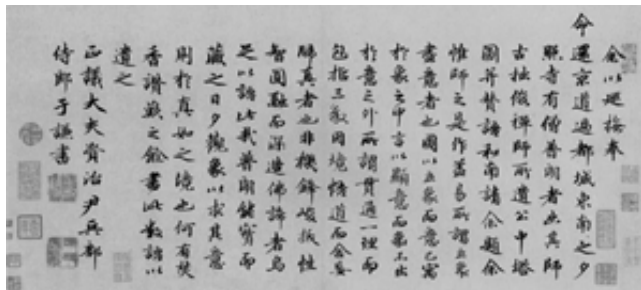 余以巡撫奉
命還京道過都城東南之夕
照寺有僧普朗者出其師
古拙俊禪師所遺公中塔
圖并贊語和南請余題余
惟師之是作蓋易所謂立象
盡意者也圖以立象而意已寓
於象之中言以顯意而象不出
於意之外所謂貫通一理而
包括三教因境悟道而會委
歸真者也非機鋒峻拔性
智圓融而深造佛諦者烏
足以語此哉普朗儲實而
藏之日夕觀象以求其意
則於真如之境也何有焚
香讚嘆之餘書此數語以
遺之
正議大夫資治尹兵部
侍郎于謙書